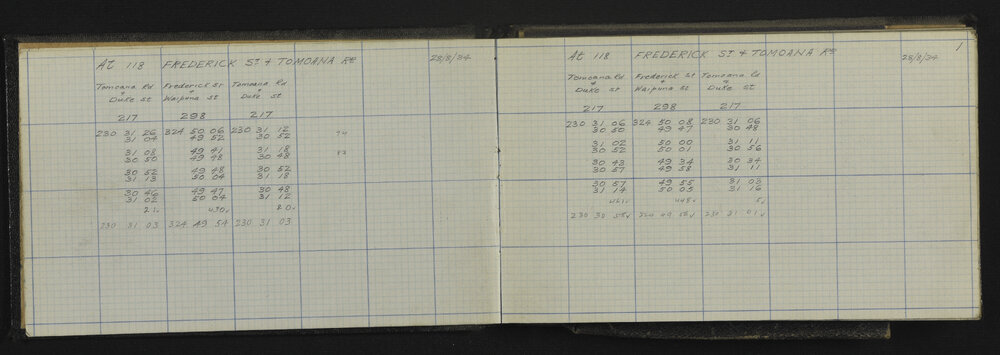 At 118 FREDERICK ST & TOMOANA RD 28/8/34
Tomoana Rd Frederick St Tomoana Rd
& & &
Duke St Waipuna St Duke St
217 298 217
230 31 26 324 50 06 230 31 12
31 04 49 52 30 52
31 08 49 41 31 18
30 50 49 48 30 48
30 52 49 48 30 52
31 13 50 04 31 18
30 46 49 47 30 48
31 02 50 04 31 12
21 430 20
230 31 03 324 49 54 230 31 03
1
At 118 FREDERICK ST & TOMOANA RD 28/8/34
Tomoana Rd Frederick St Tomoana Rd
& & &
Duke St Waipuna St Duke St
217 298 217
230 31 06 324 50 08 230 31 06
30 50 49 47 30 48
31 02 50 00 31 11
30 52 50 01 30 56
30 48 49 34 30 34
30 57 49 58 31 11
30 57 49 55 31 03
31 14 50 05 31 16
461 448 5
230 30 58 324 49 56 230 31 01